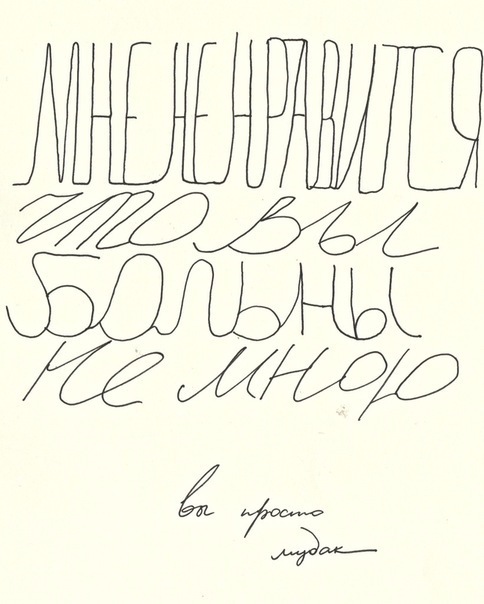 МНЕ НЕ НРАВИТСЯ
что вы
БОЛЬНЫ
не мною
вы просто
мудак